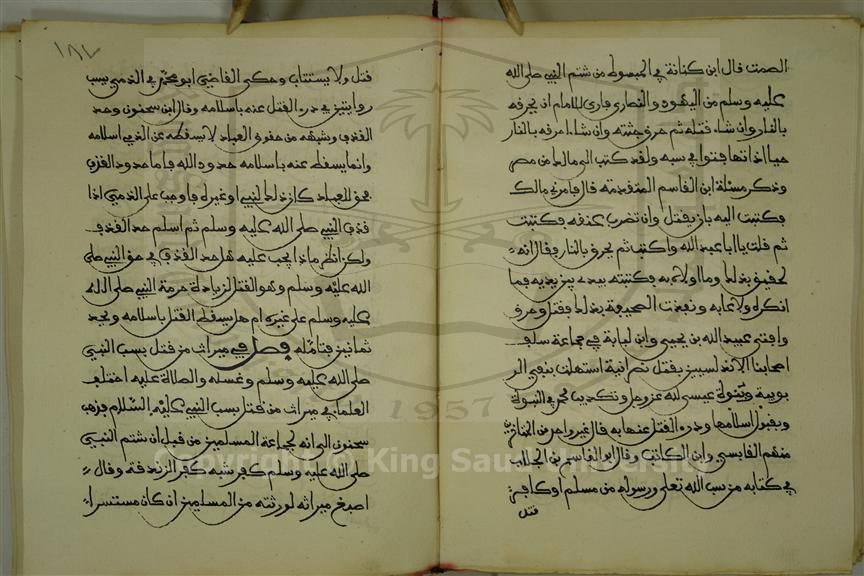 الصمت قال ابن كنانة في المبسوط من شتم النبي صلى الله
عليه وسلم من اليهود والنصارى فأرى للإمام أن يحرقه
بالنار وإن شاء قتله ثم حرق جثته وإن شاء أحرقه بالنار
حيا إذا تهافتوا في سبه ولقد كتب إلى مالك من مصر
وذكر مسئلة ابن القاسم المتقدمة قال فأمرني مالك
فكتبت إليه بأن يقتل وأن تضرب عنقه فكتبت
ثم قلت يا أبا عبد الله واكتب ثم يحرق بالنار فقال إنه
لحقيق بذلك وما أولاه به فكتبته بيدي بين يديه فما
أنكره ولا عابه ونفذت الصحيفة بذلك فقتل وحرق
وأفتى عبيد الله بن يحيى وابن لبابة في جماعة سلف
أصحابنا الأندلسيين بقتل نصرانية استهلت بنفي الر
بوبية وبنوة عيسى لله عز وجل وتكذيب محمد في النبوة
وبقبول إسلامها ودرء القتل عنها به قال غير واحد من المتأخرين
منهم القابسي وابن الكاتب وقال أبو القاسم بن الجلاب
في كتابه من سب الله تعلى ورسوله من مسلم أو كافر
قتل
١٨٧
قتل ولا يستتاب وحكى القاضي أبو محمد في الذمي يسب
روايتين في درء القتل عنه بإسلامه وقال ابن سحنون وحد
القذف وشبهه من حقوق العباد لا يسقطه عن الذمي إسلامه
وإنما يسقط عنه بإسلامه حدود الله فأما حد القذف
بحق للعباد كان ذلك لنبي أو غيره فأوجب على الذمي إذا
قذف النبي صلى الله عليه وسلم ثم أسلم حد القذف
ولكن انظر ماذا يجب عليه هل حد القذف في حق النبي صلى
الله عليه وسلم وهو القتل لزيادة حرمة النبي صلى الله
عليه وسلم على غيره أم هل يسقط القتل بإسلامه ويحد
ثمانين فتأمله فصل في ميراث من قتل بسب النبي
صلى الله عليه وسلم وغسله والصلاة عليه اختلف
العلماء في ميراث من قتل بسب النبي عليه السلام فذهب
سحنون إلى أنه لجماعة المسلمين من قبل أن شتم النبي
صلى الله عليه وسلم كفر يشبه كفر الزندقة وقال
أصبغ ميراثه لورثته من المسلمين إن كان مستسرا
Copyright © King Saud University
1957